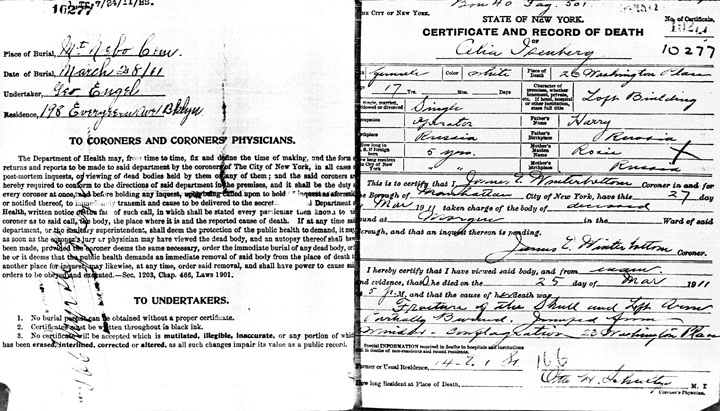 10277
7/24/11/BS.
Place of Burial, Mt Nebo Cem
Date of Burial, March 28/11
Undertaker, Geo Engel
Residence, 198 Evergreen Ave Bklyn
TO CORONERS AND CORONERS' PHYSICIANS.
The Department of Health may, from time to time, fix and define the time of making, and the form of
returns and reports to be made to said department by the coroners of The City of New York, in all cases
post-mortem inquests, or viewing of dead bodies held by them or any of them; and the said coroners
hereby required to conform to the directions of said department in the premises, and it shall be the duty
every coroner at once, and before holding any inquest, upon being called upon to hold an inquest
or notified thereof, to immediately transmit and cause to be delivered to the secretary said Department
Health, written notice of the fact of such call, in which shall be stated every particular then known to
coroner as to said call, the body, the place where it is and the reported cause of death. If at any time
department, or the sanitary superintendent, shall deem the protection of the public health to demand, it may
as soon as the coroner's jury or physician may have viewed the dead body, and an autopsy thereof shall have
been made, provided the coroner deems the same necessary, order the immediate burial of any dead body, or
he or it deems that the public health demands an immediate removal of said body from the place of death
another place for inquest may likewise, at any time, order said removal, and shall have power to cause said
orders to be obeyed and executed.—Sec. 1203, Chap. 466, Laws 1901.
TO UNDERTAKERS.
1. No burial permit can be obtained without a proper certificate.
2. Certificates must be written throughout in black ink.
3. No certificate will be accepted which is mutilated, illegible, inaccurate, or any portion of which
has been erased, interlined, corrected or altered, as all such changes impair its value as a public record.
Box 40 Pag. 501
THE CITY OF NEW YORK.
STATE OF NEW YORK.
No. of Certificate,
CERTIFICATE AND RECORD OF DEATH
10277
OF
Celia Isenberg
10277
female Color white Place of Death 26 Washington Place
17 Yrs. Mos. Days
Character of premises, whether tenement, private, etc. If hotel, hospital or other institution, state full title
Loft Building
Single, married, widowed or divorced
Single
Occupation operator Father's Name Harry
Birthplace Russia Father's Birthplace Russia
How long in U.S. if foreign born 5 yrs. Mother's Maiden Name Rosie X
How long resident in City of New York " " Mother's Birthplace Russia
This is to certify that I James E Winterbottom Coroner in and for
the Borough of Manhattan City of New York, have this 27 day
Mar 1911 taken charge of the body of deceased
found at Morgue in the Ward of said
Borough, and that an inquest thereon is pending.
James E. Winterbottom Coroner.
I hereby certify that I have viewed said body, and from exam
and evidence, that she died on the 25 day of Mar 1911
5 P.M., and that the cause of her death was
Fracture of the Skull and Left Arm
Partially Burned. Jumped from
Window Conflagration 23 Washington Place
Special INFORMATION required in deaths in hospitals and institutions
and in deaths of non-residents and recent residents.
Former or Usual Residence, 166
How long Resident at Place of Death,
Otto H. Schultze M. D.
Coroner's Physician.